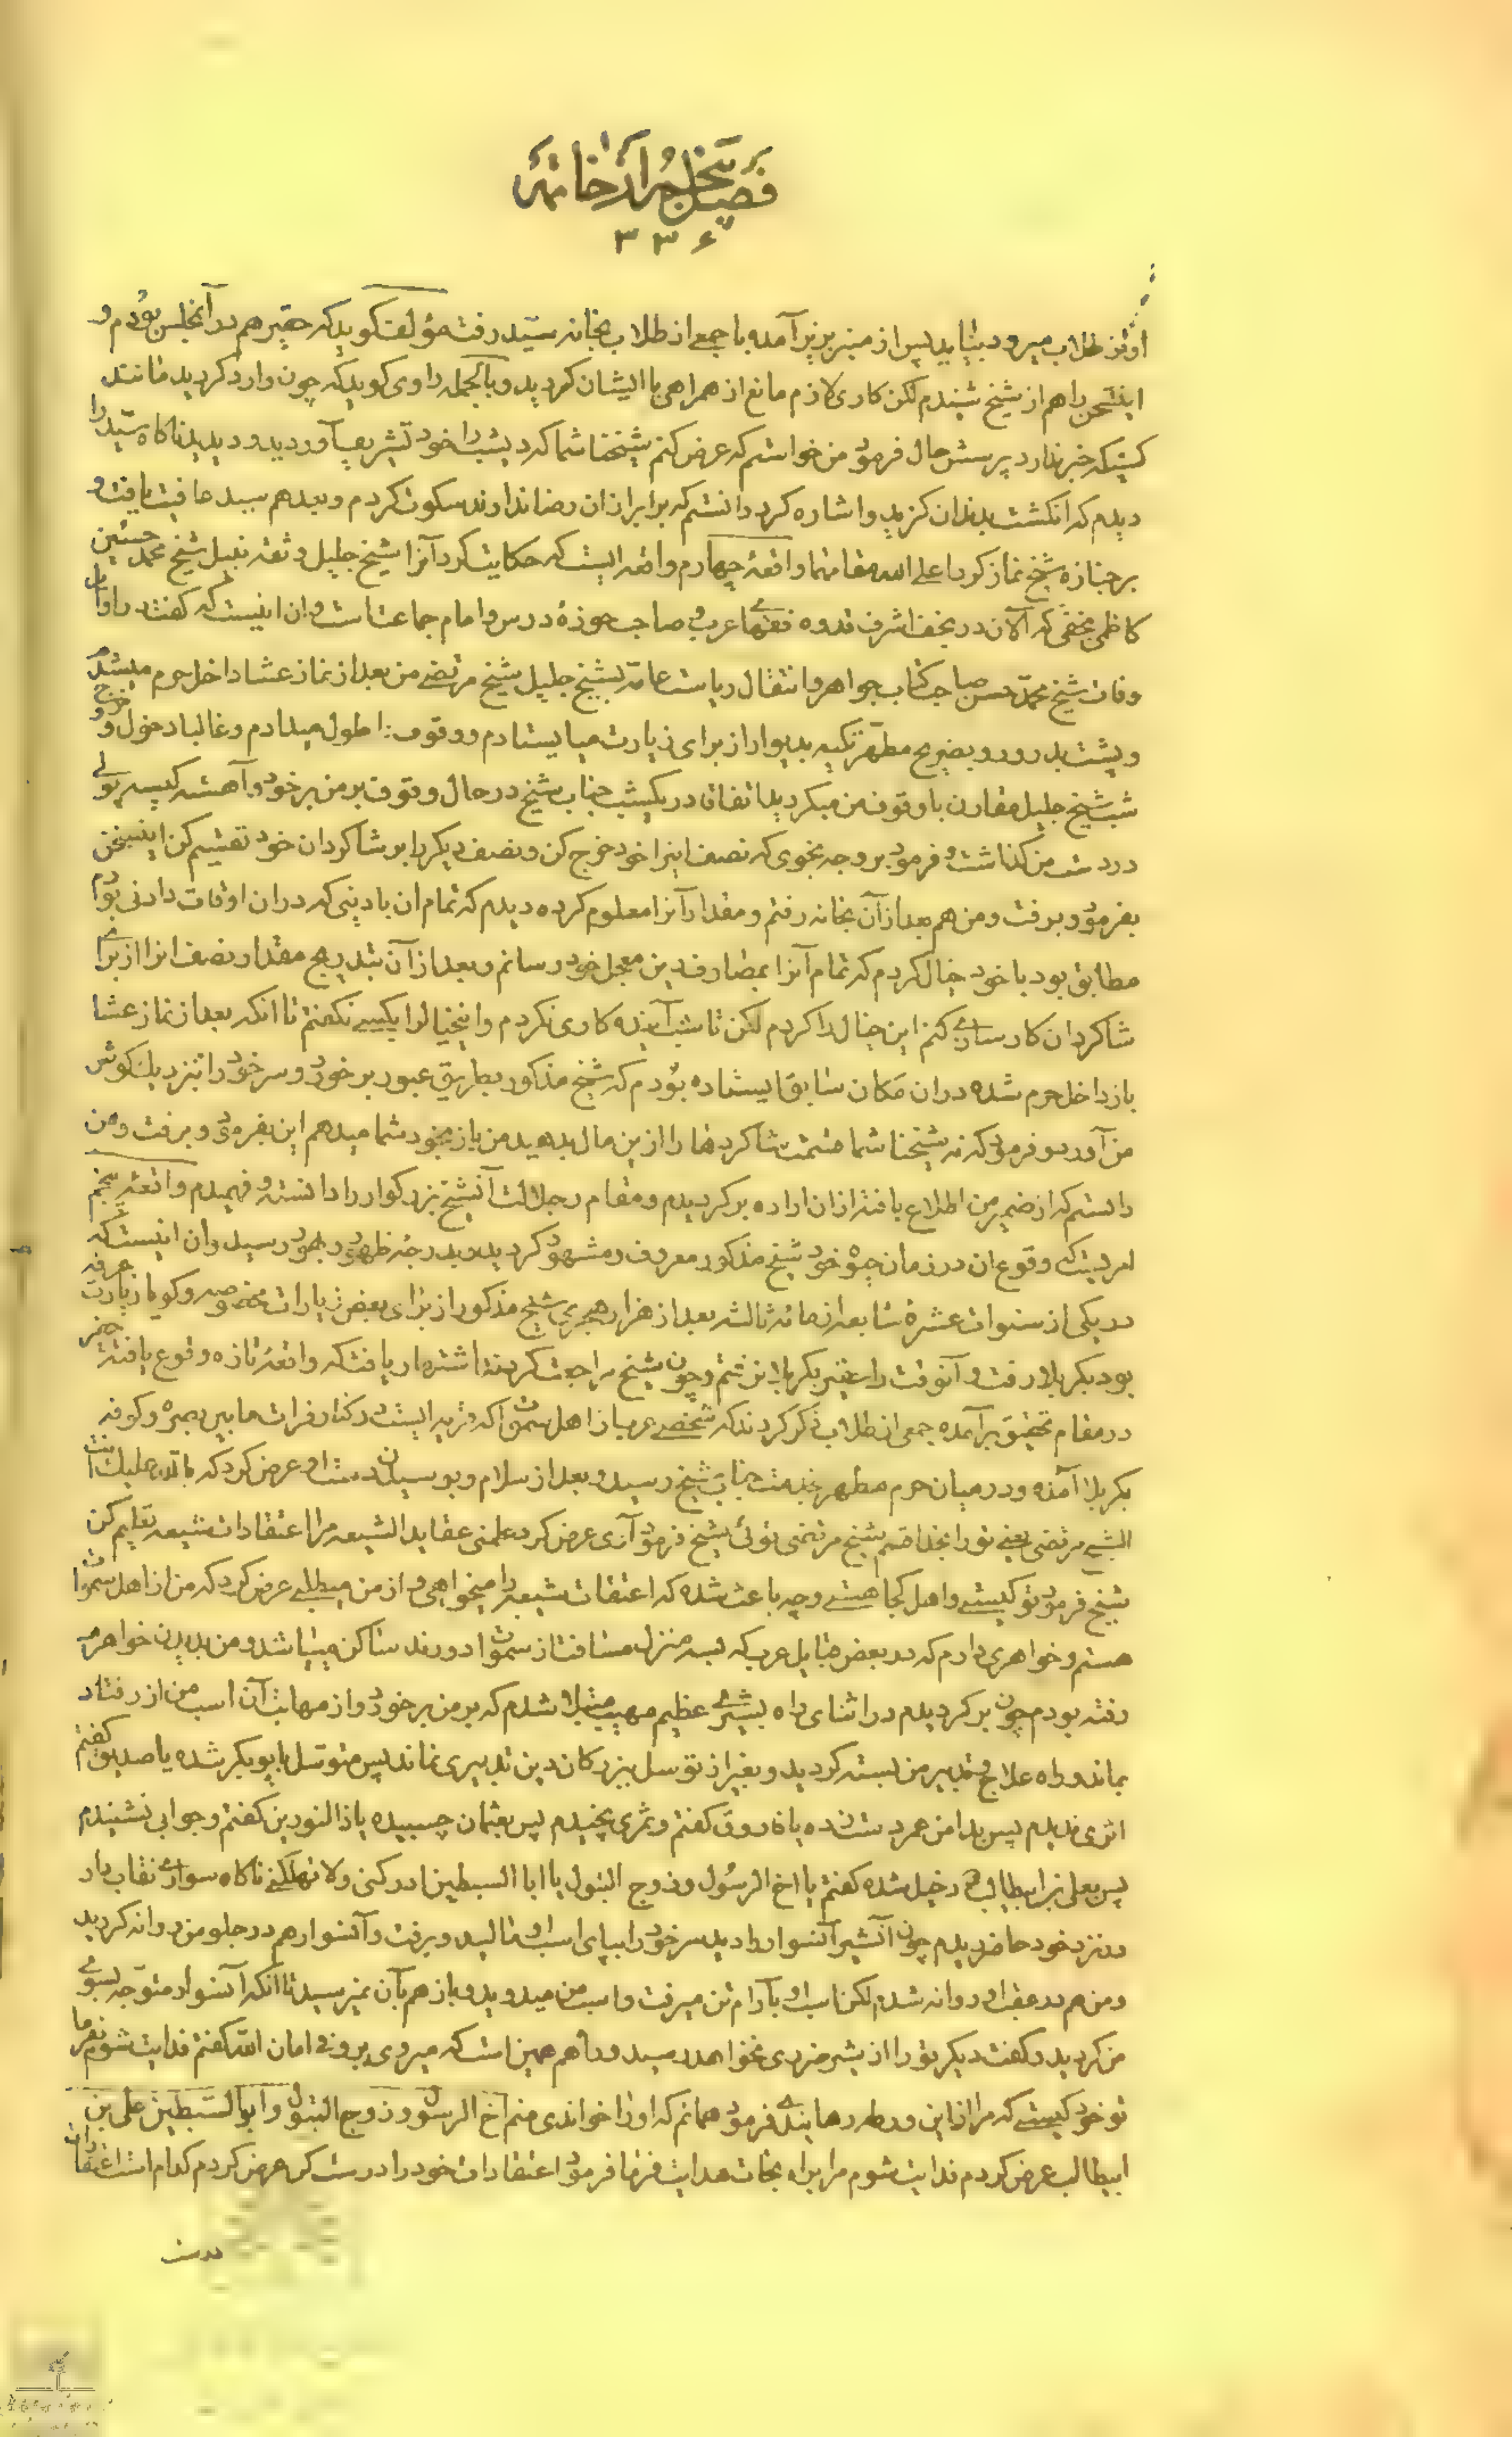 فصل پنجم از خاتمه
۳۳۶
او نزد طلاب میرود بیایید پس از منبر بزیر آمده با جمعی از طلاب بخانه سید رفت مؤلف گوید که حقیر هم در آنمجلس بودم و
اینسخن را هم از شیخ شنیدم لکن کاری لازم مانع از همراهی با ایشان گردید و بالجمله راوی گوید که چون وارد گردید مانند
کسیکه خبر ندارد پرسش حال فرمود من خواستم که عرض کنم شیخنا شما که دیشب خود تشریف آوردید و دیدید ناگاه سید را
دیدم که انگشت بدندان گزید و اشاره کرد دانستم که برابراز ان رضا ندارند سکوت کردم و بعد هم سید عافیت یافت و
بر جنازه شیخ نماز کرد اعلی الله مقامهما واقعهٔ چهارم واقعه ایست که حکایت کرد آنرا شیخ جلیل و ثقه نبیل شیخ محمد حسین
کاظمی نجفی که الآن در نجف اشرف قدوه فقهای عرب و صاحب حوزهٔ درس و امام جماعت است و ان اینست که گفت در اوان
وفات شیخ محمد حسن صاحب کتاب جواهر و انتقال ریاست عامه بشیخ جلیل شیخ مرتضی من بعد از نماز عشا داخل حرم میشدم
و پشت بدر و رو بضریح مطهر تکیه بدیوار از برای زیارت میایستادم و وقوف را طول میدادم و غالبا دخول و خروج
شب شیخ جلیل مقارن با وقوف من میگردید اتفاقا در یکشب جناب شیخ در حال وقوف بر من برخورد و آهسته کیسه پولی
در دست من گذاشت و فرمود بر وجه نجوی که نصف اینرا خود خرج کن و نصف دیگر را بر شاگردان خود تقسیم کن اینسخن
بفرمود و برفت و من هم بعد از آن بخانه رفتم و مقدار آنرا معلوم کرده دیدم که تمام ان با دینی که در ان اوقات دادنی بودم
مطابق بود با خود خیال کردم که تمام آنرا بمصارف دین معجل خود رسانم و بعد از آن بتدریج مقدار نصف انرا از برای
شاگردان کارسازی کنم این خیال را کردم لکن تا شب آینده کاری نکردم و اینخیال را بکسی نگفتم تا انکه بعد از نماز عشا
باز داخل حرم شده در ان مکان سابق ایستاده بودم که شیخ مذکور بطریق عبور برخورد و سر خود را بنزدیک گوش
من آورد و فرمود که نه شیخنا شما قسمت شاگردها را از ین مال بدهید من باز بخود شما میدهم این بفرمود و برفت و من
دانستم که از ضمیر من اطلاع یافته از ان اراده برگردیدم و مقام و جلالت آنشیخ بزرگوار را دانسته و فهمیدم واقعهٔ پنجم
امریست که وقوع ان در زمان حیوة خود شیخ مذکور معروف و مشهود گردید و بدرجهٔ ظهور و شهود رسید و ان اینست که
در یکی از سنوات عشرهٔ سابعه از مائه ثالثه بعد از هزار هجری شیخ مذکور از برای بعض زیارات مخصوصه و گویا زیارت عرفه
بود بکربلا رفت و آنوقت داعی بکربلا نرفتم و چون شیخ مراجعت کردند اشتهار یافت که واقعهٔ تازه وقوع یافته حقیر
در مقام تحقیق برآمده جمعی از طلاب ذکر کردند که شخصی عرب از اهل سموات که قریه ایست در کنار فرات مابین بصره و کوفه
بکربلا آمده و در میان حرم مطهر خدمت جناب شیخ رسید و بعد از سلام و بوسیدن دست او عرض کرد که بالله علیک انت
الشیخ مرتضی یعنی تو را بخدا قسم شیخ مرتضی توئی شیخ فرمود آری عرض کرد علمنی عقاید الشیعه مرا اعتقادات شیعه تعلیم کن
شیخ فرمود تو کیستی و اهل کجا هستی و چه باعث شده که اعتقادات شیعه را میخواهی و از من میطلبی عرض کرد که من از اهل سموات
هستم و خواهری دارم که در بعض قبایل عرب که بسه منزل مسافت از سموات دورند ساکن میباشد و من بدیدن خواهر
رفته بودم چون برگردیدم در اثنای راه بشیری عظیم مهیب مبتلا شدم که بر من برخورد و از مهابت آن اسب من از رفتار
بماند و راه علاج و تدبیر من بسته گردید و بغیر از توسل ببزرگان دین تدبیری نماند پس متوسل بابوبکر شده یا صدیق گفتم
اثری ندیدم پس بدامن عمر دست زده یا فاروق گفتم و ثمری نچیدم پس بعثمان چسبیده یا ذا النورین گفتم و جوابی نشنیدم
پس بعلی بن ابیطالب دخیل شده گفتم یا اخ الرسول و زوج البتول یا ابا السبطین ادرکنی و لا تهلکنی ناگاه سواری نقاب دار
در نزد خود حاضر دیدم چون آنشیر آنسوار را دید سر خود را بپای اسب او مالید و برفت و آنسوار هم در جلو من روانه گردید
و من هم در عقب او روانه شدم لکن اسب او بآرام تن میرفت و اسب من میدوید و باز هم بآن نمیرسید تا آنکه آنسوار متوجه بسوی
من گردید و گفت دیگر تو را از شیر ضرری نخواهد رسید و راه هم همین است که میروی برو فی امان الله گفتم فدایت شوم بفرما
تو خود کیستی که مرا از این ورطه رهانیدی فرمود همانم که او را خواندی منم اخ الرسول و زوج البتول و ابو السبطین علی بن
ابیطالب عرض کردم فدایت شوم مرا براه نجات هدایت فرما فرمود اعتقادات خود را درست کن عرض کردم کدام است اعتقادات
درست